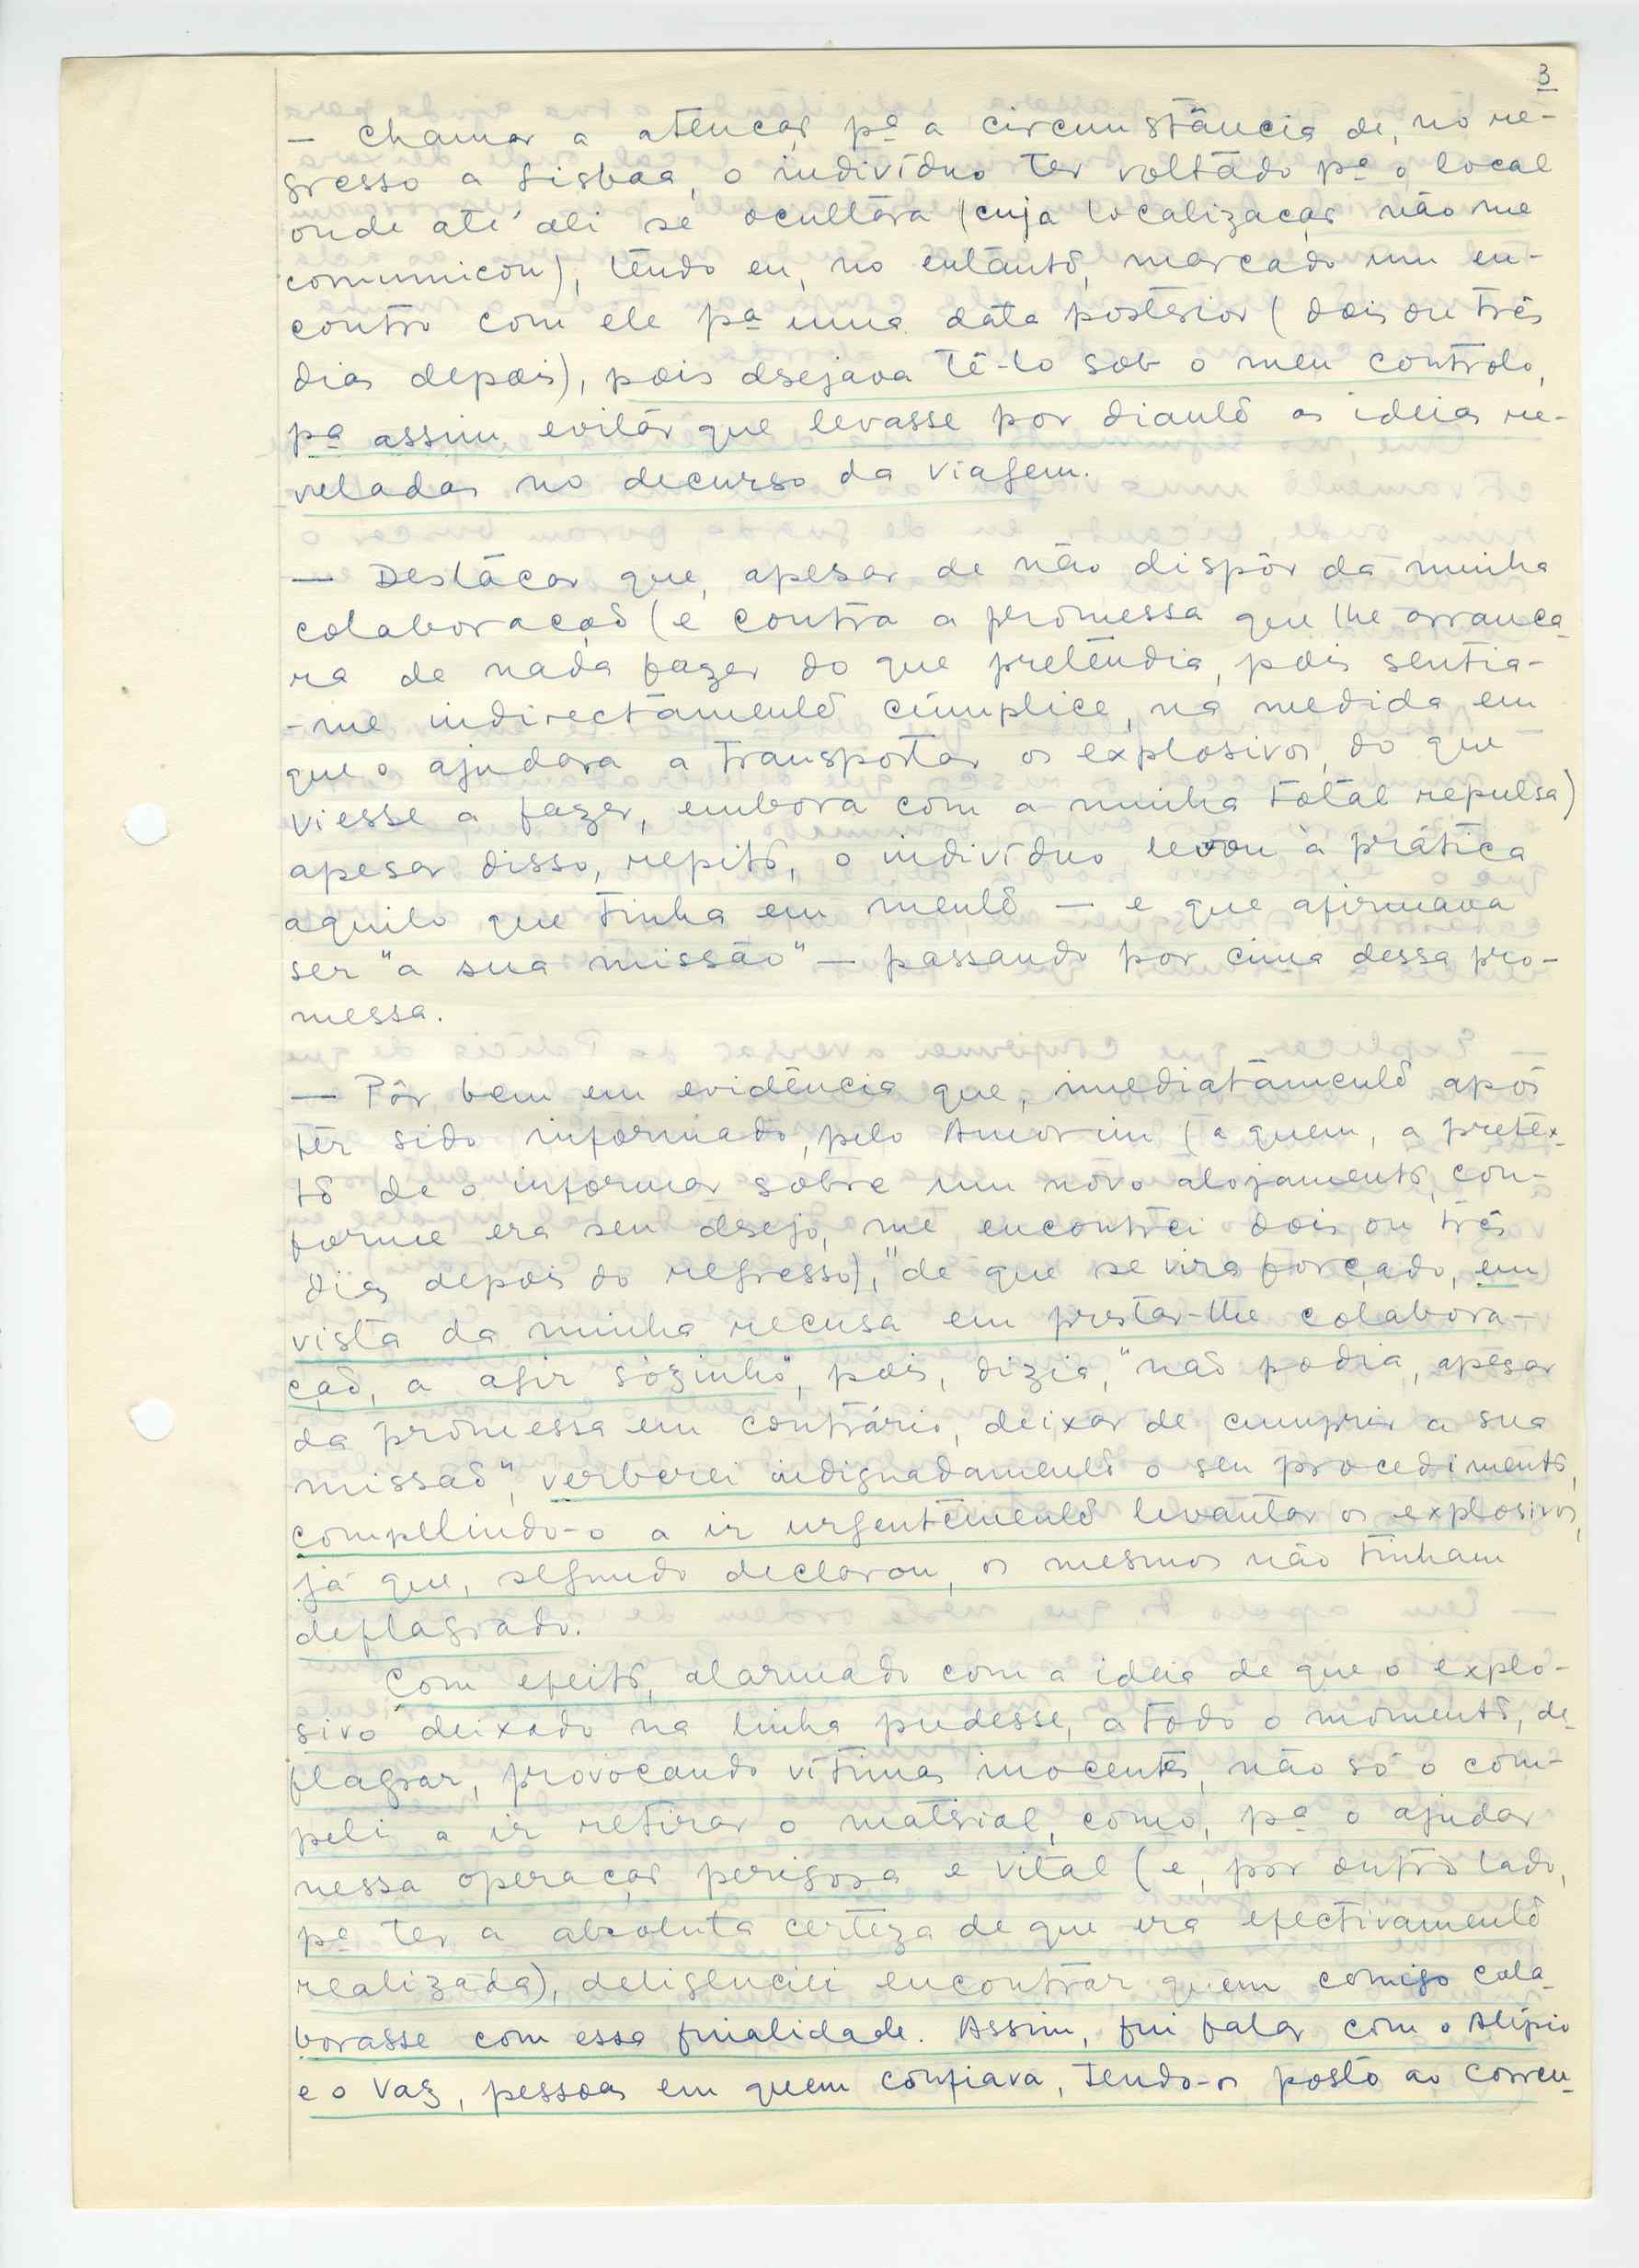 3
— Chamar a atenção pª a circunstância de, no re-
gresso a Lisboa, o indivíduo ter voltado pª o local
onde até ali se ocultára (cuja localização não me
comunicou), tendo eu, no entanto, marcado um en-
contro com ele pª uma data posterior (dois ou três
dias depois), pois desejava tê-lo sob o meu controlo,
pª assim evitar que levasse por diante as ideias re-
veladas no decurso da viagem.
— Destacar que, apesar de não dispôr da minha
colaboração (e contra a promessa que lhe arranca-
ra de nada fazer do que pretendia, pois sentia-
-me indirectamente cúmplice, na medida em
que o ajudara a transportar os explosivos, do que
viesse a fazer, embora com a minha total repulsa)
apesar disso, repito, o indivíduo levou à prática
aquilo que tinha em mente — e que afirmava
ser "a sua missão" — passando por cima dessa pro-
messa.
— Pôr bem em evidência que, imediatamente após
ter sido informado, pelo Amorim (a quem, a pretex-
to de o informar sobre um novo alojamento, con-
forme era seu desejo, me encontrei dois ou três
dias depois do regresso), "de que se vira forçado, em
vista da minha recusa em prestar-lhe colabora-
ção, a agir sòzinho", pois, dizia, "não podia, apesar
da promessa em contrário, deixar de cumprir a sua
missão", verberei indignadamente o seu procedimento,
compelindo-o a ir urgentemente levantar os explosivos,
já que, segundo declarou, os mesmos não tinham
deflagrado.
Com efeito, alarmado com a ideia de que o explo-
sivo deixado na linha pudesse, a todo o momento, de-
flagrar, provocando vítimas inocentes, não só o com-
peli a ir retirar o material, como, pª o ajudar
nessa operação perigosa e vital (e, por outro lado,
pª ter a absoluta certeza de que era efectivamente
realizada), deligenciei encontrar quem comigo cola-
borasse com essa finalidade. Assim, fui falar com o Alípio
e o Vaz, pessoas em quem confiava, tendo-os posto ao corren-